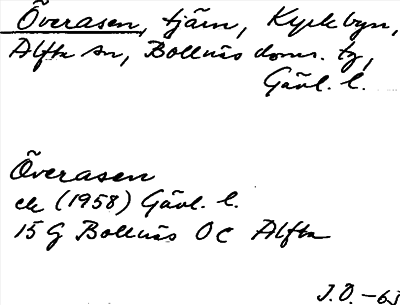 Överasen, tjärn, Kyrkbyn,
Alfta sn, Bollnäs doms. tg,
Gävl. l.
Överasen
ek (1958) Gävl. l.
15 G Bollnäs OC Alfta
J.Ö. -63